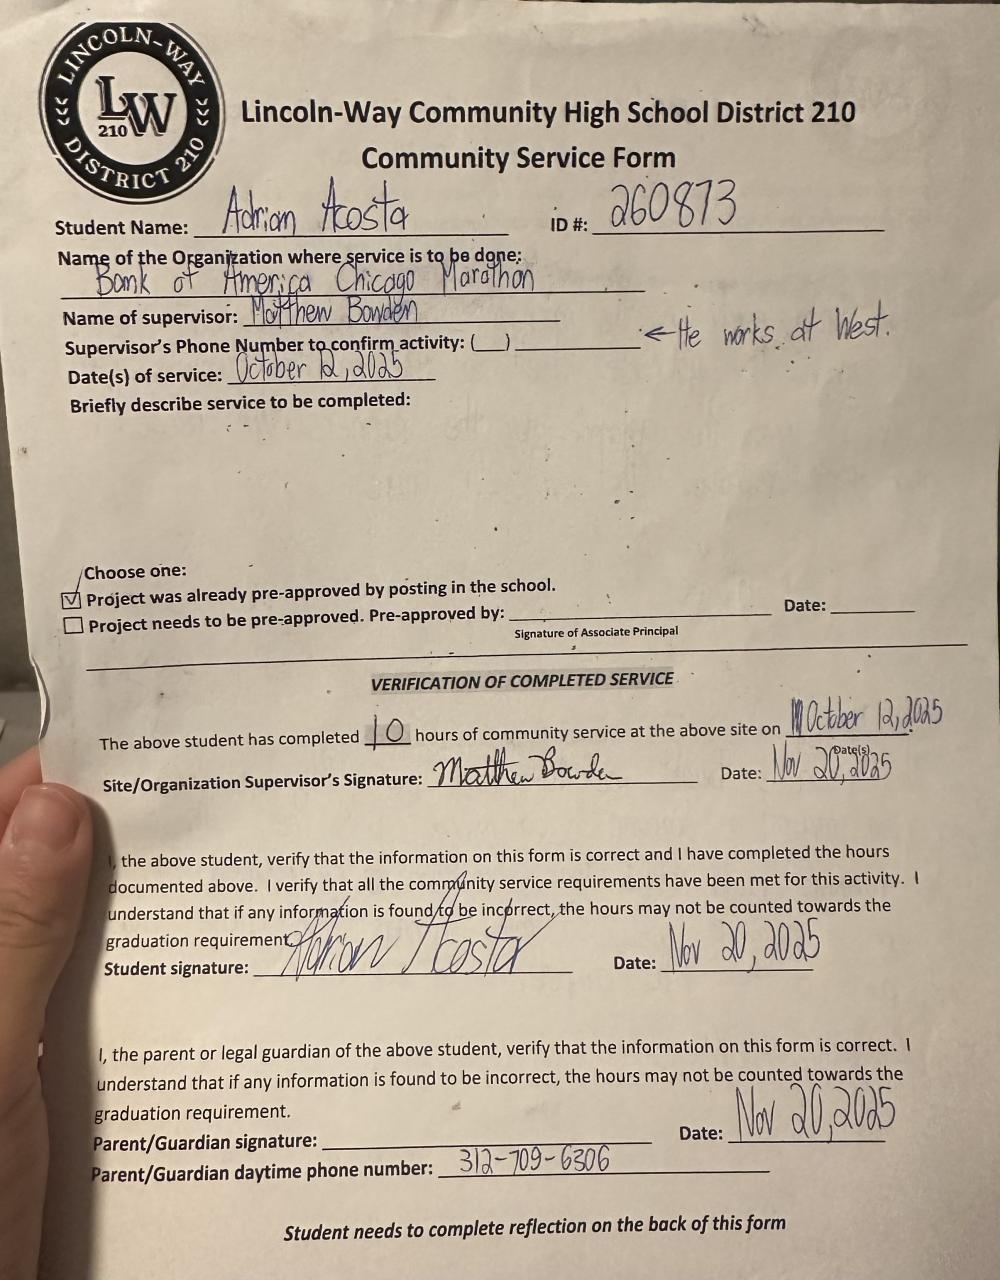 LINCOLN-WAY
LW
210
DISTRICT 210
Lincoln-Way Community High School District 210
Community Service Form
Student Name: Adrian Acosta ID #: 260873
Name of the Organization where service is to be done:
Bank of America Chicago Marathon
Name of supervisor: Matthew Bowden
Supervisor's Phone Number to confirm activity: (__) ________ ← He works at West.
Date(s) of service: October 12, 2025
Briefly describe service to be completed:
Choose one:
☑ Project was already pre-approved by posting in the school.
☐ Project needs to be pre-approved. Pre-approved by: ________ Date: ________
Signature of Associate Principal
VERIFICATION OF COMPLETED SERVICE
The above student has completed 10 hours of community service at the above site on October 12, 2025
Date(s)
Site/Organization Supervisor's Signature: Matthew Bowden Date: Nov 20, 2025
I, the above student, verify that the information on this form is correct and I have completed the hours
documented above. I verify that all the community service requirements have been met for this activity. I
understand that if any information is found to be incorrect, the hours may not be counted towards the
graduation requirement.
Student signature: Adrian Acosta Date: Nov 20, 2025
I, the parent or legal guardian of the above student, verify that the information on this form is correct. I
understand that if any information is found to be incorrect, the hours may not be counted towards the
graduation requirement.
Parent/Guardian signature: ________ Date: Nov 20, 2025
Parent/Guardian daytime phone number: 312-709-6306
Student needs to complete reflection on the back of this form